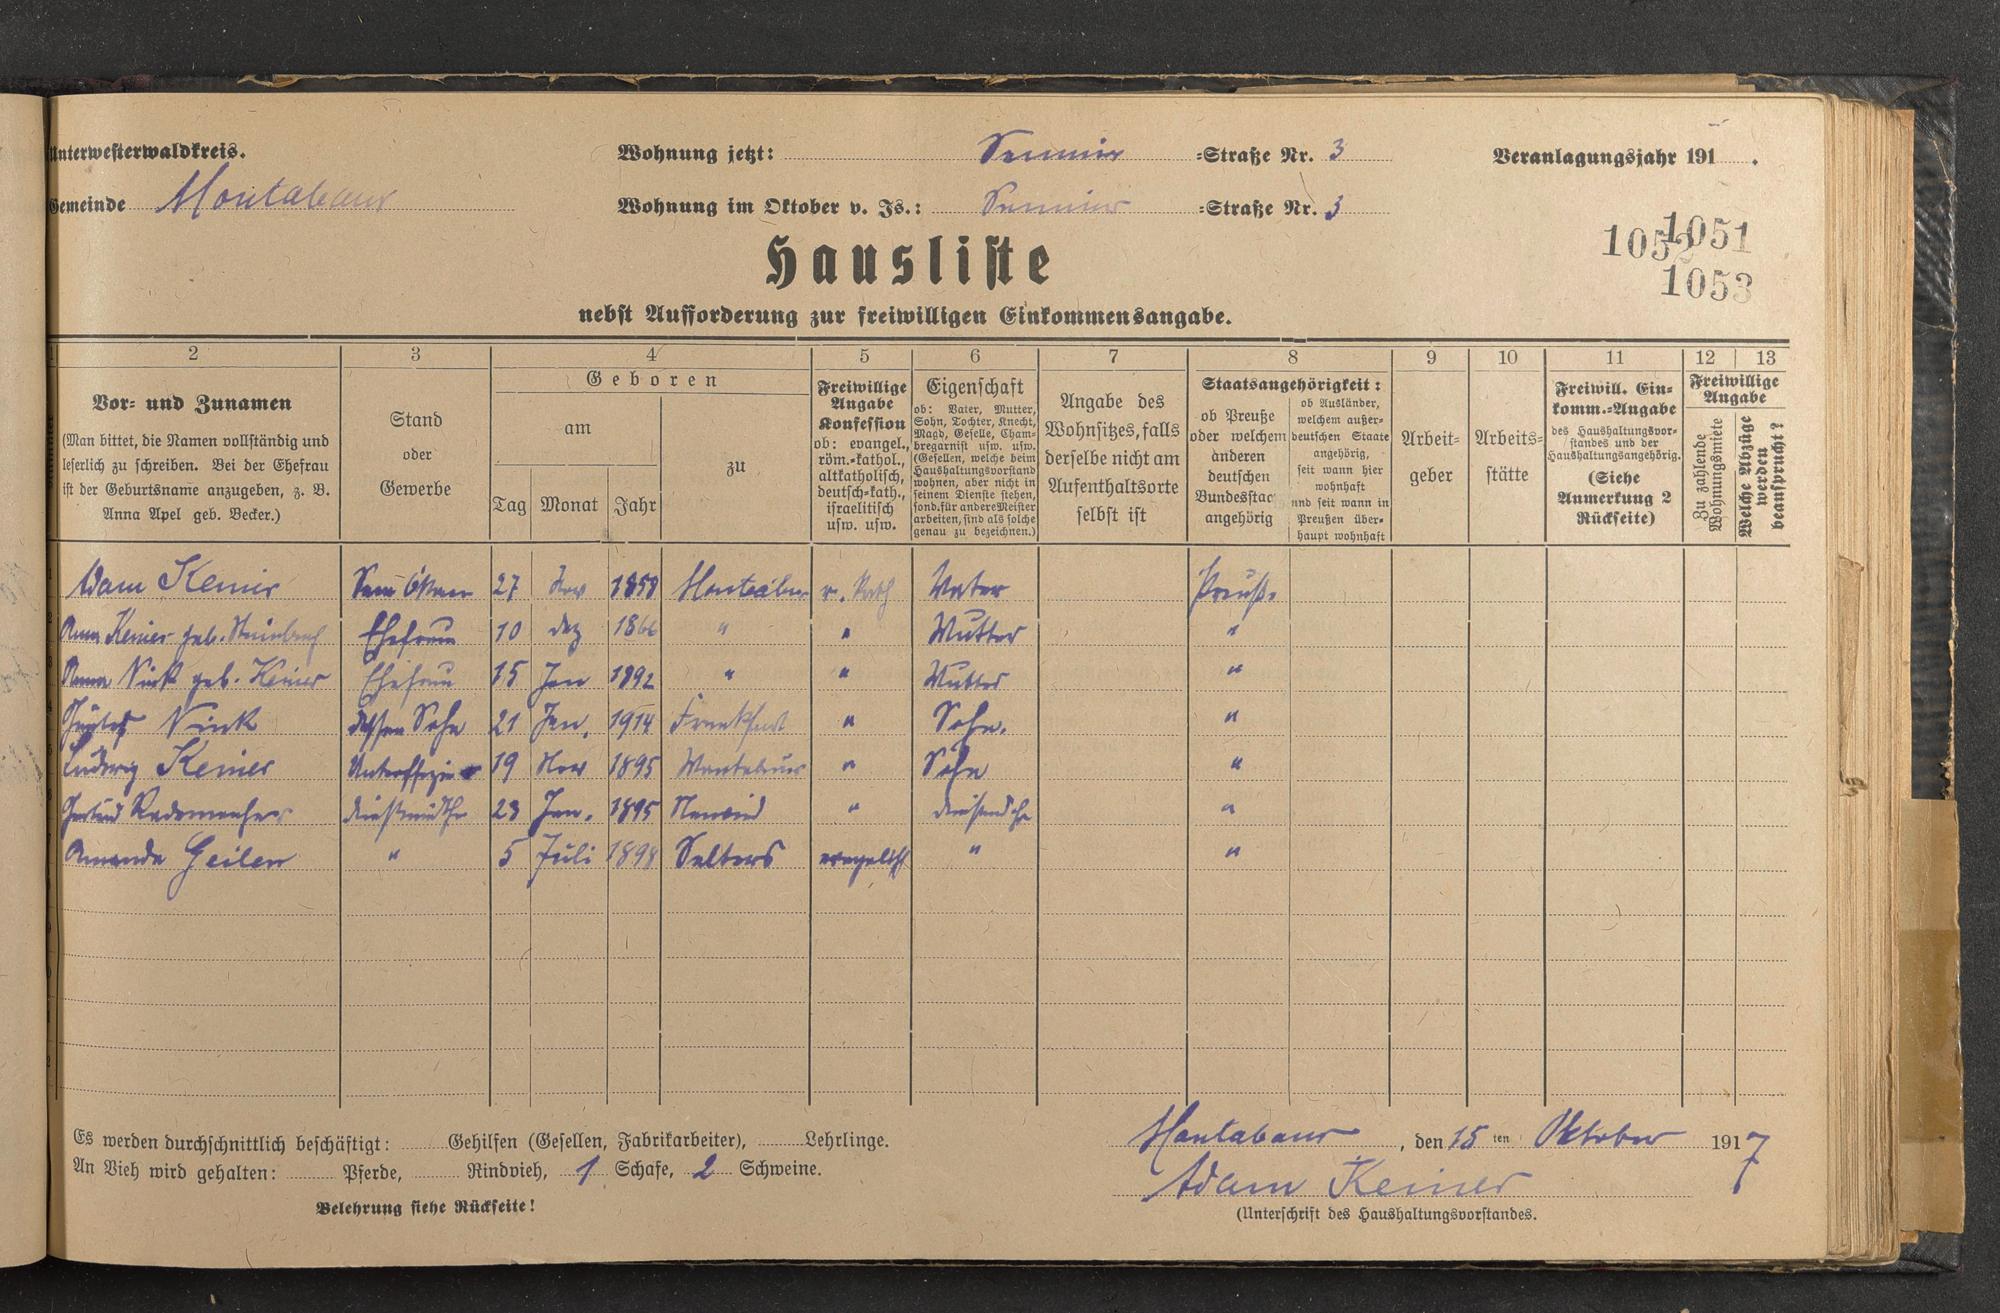 Unterwesterwaldkreis.
Wohnung jetzt: =Straße Nr. 3
Veranlagungsjahr 191 .
Gemeinde Montabaur
Wohnung im Oktober v. Js.: =Straße Nr. 3
1052 1051
1053
Hausliste
nebst Aufforderung zur freiwilligen Einkommensangabe.
2 3 4 5 6 7 8 9 10 11 12 13
Vor- und Zunamen
(Man bittet, die Namen vollständig und
leserlich zu schreiben. Bei der Ehefrau
ist der Geburtsname anzugeben, z. B.
Anna Apel geb. Becker.)
Stand
oder
Gewerbe
Geboren
am
Tag Monat Jahr
zu
Freiwillige
Angabe
Konfession
ob: evangel.,
röm.-kathol.,
altkatholisch,
deutsch-kath.,
israelitisch
usw. usw.
Eigenschaft
ob: Vater, Mutter,
Sohn, Tochter, Knecht,
Magd, Geselle, Cham-
bregarnist usw. usw.
(Gesellen, welche beim
Haushaltungsvorstand
wohnen, aber nicht in
seinem Dienste stehen,
sond. für andere Meister
arbeiten, sind als solche
genau zu bezeichnen.)
Angabe des
Wohnsitzes, falls
derselbe nicht am
Aufenthaltsorte
selbst ist
Staatsangehörigkeit:
ob Preuße
oder welchem
anderen
deutschen
Bundesstaa
angehörig
ob Ausländer,
welchem außer-
deutschen Staate
angehörig,
seit wann hier
wohnhaft
und seit wann in
Preußen über-
haupt wohnhaft
Arbeit-
geber
Arbeits-
stätte
Freiwill. Ein-
komm.-Angabe
des Haushaltungsvor-
standes und der
Haushaltungsangehörig.
(Siehe
Anmerkung 2
Rückseite)
Freiwillige
Angabe
Zu zahlende
Wohnungsmiete
Welche Abzüge
werden
beansprucht?
Adam Keiner 27 Nov 1858 Montabaur r. Kath Vater Preuß.
Anna Keiner geb. Steinbach Ehefrau 10 dez 1866 " " Mutter "
Anna Nink geb. Keiner Ehefrau 15 Jan 1892 " " Mutter "
Nink dessen Sohn 21 Jan. 1914 Frankfurt " Sohn. "
Ludwig Keiner Unteroffizier 19 Nov 1895 Montabaur " Sohn "
Gertrud 23 Jan. 1895 Neuwied " "
Amanda Geilen " 5 Juli 1898 Selters evangelisch " "
Es werden durchschnittlich beschäftigt: Gehilfen (Gesellen, Fabrikarbeiter), Lehrlinge.
An Vieh wird gehalten: Pferde, Rindvieh, 1 Schafe, 2 Schweine.
Belehrung siehe Rückseite!
Montabaur, den 15 ten Oktober 1917
Adam Keiner
(Unterschrift des Haushaltungsvorstandes.